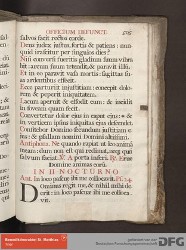 OFFICIUM DEFUNCT.
salvos facit rectos corde.
Deus judex justus, fortis & patiens: nunquid irascitur per singulos dies?
Nisi conversi fueritis gladium suum vibrabit: arcum suum tetendit, & paravit illum.
Et in eo paravit vasa mortis: sagittas suas ardentibus effecit.
Ecce parturit injustitiam: concepit dolorem & peperit iniquitatem.
Lacum aperuit & effodit eum: & incidit in foveam quam fecit.
Convertetur dolor ejus in caput ejus: & in verticem ipsius iniquitas ejus descendet.
Confitebor Domino secundum justitiam ejus: & psallam nomini Domini altissimi.
Antiphona. Ne quando rapiat ut leo animam meam: dum non est qui redimat, neque qui salvum faciat. A porta inferi. Erue Domine animas eorum.
IN II NOCTURNO
Ant. In loco pascuae ibi me collocavit.
Dominus regit me, & nihil mihi deerit: in loco pascuae ibi me collocavit.
DFG